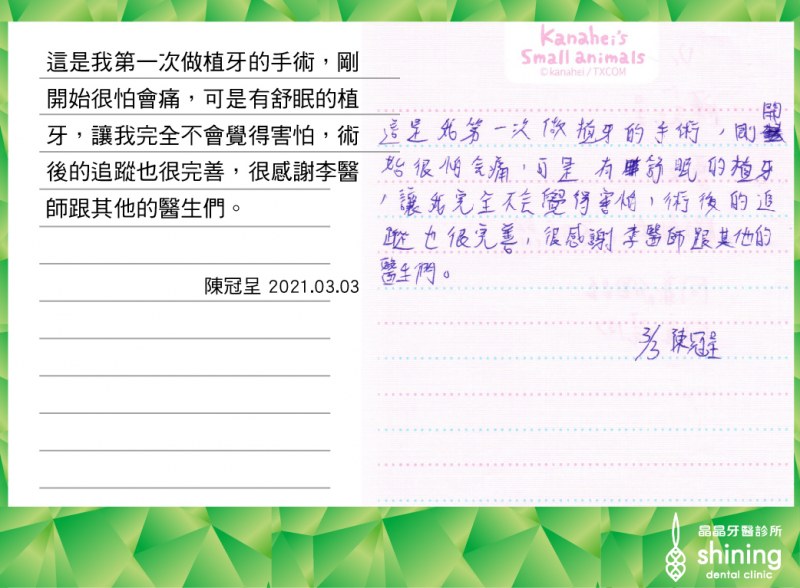 這是我第一次做植牙的手術，剛
開始很怕會痛，可是有舒眠的植
牙，讓我完全不會覺得害怕，術
後的追蹤也很完善，很感謝李醫
師跟其他的醫生們。
陳冠呈 2021.03.03
Kanahei's
Small animals
© kanahei / TXCOM
這是我第一次做植牙的手術，剛開
始很怕会痛，可是有舒眠的植牙
，讓我完全不会覺得害怕，術後的追
蹤也很完善，很感謝李醫師跟其他的
醫生們。
3/3 陳冠呈
晶晶牙醫診所
shining
dental clinic